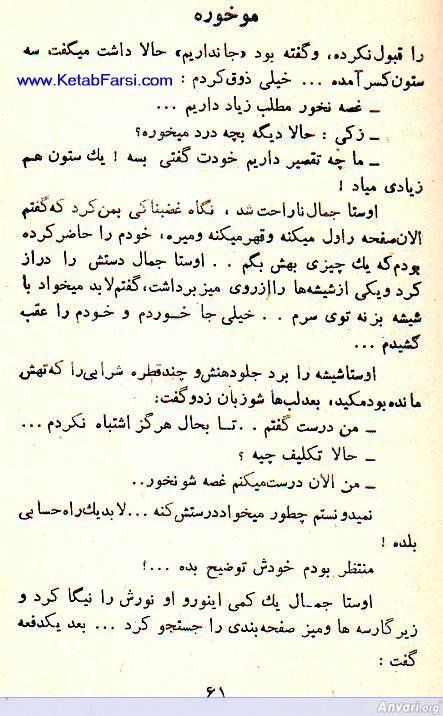 موخوره
را قبول نکرده، وگفته بود «جا نداریم» حالا داشت میگفت سه
ستون کسر آمده ... خیلی ذوق کردم :
www.KetabFarsi.com
ـ غصه نخور مطلب زیاد داریم ...
ـ زکی : حالا دیگه بچه درد میخوره؟
ـ ما چه تقصیر داریم خودت گفتی بسه ! یك ستون هم
زیادی میاد !
اوستا جمال ناراحت شد ، نگاه غضبناکی بمن کرد که گفتم
الان صفحه را ول میکنه و قهر میکنه و میره، خودم را حاضر کرده
بودم که یك چیزی بهش بگم . . اوستا جمال دستش را دراز
کرد و یکی از شیشه‌ها را از روی میز برداشت، گفتم لابد میخواد با
شیشه بزنه توی سرم . . خیلی جا خـوردم و خـودم را عقب
کشیدم ...
اوستا شیشه را برد جلو دهنش و چند قطره شرابی را که تهش
مانده بود مکید، بعد لب‌ها شو زبان زد و گفت:
ـ من درست گفتم . . تـا بحال هرگز اشتباه نکردم ...
ـ حالا تکلیف چیه ؟
ـ من الان درست میکنم غصه شو نخور..
نمیدونستم چطور میخواد درستش کنه ... لابد یك راه حسابی
بلده !
منتظر بودم خودش توضیح بده ...!
اوستا جمـال یك کمی اینورو او نورش را نیگا کرد و
زیر گارسه ها و میز صفحه بندی را جستجو کرد ... بعد یکدفعه
گفت :
۶۱
Anvari.org